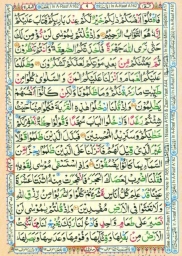 فَاقْتُلُوْٓا اَنْفُسَكُمْ ذٰلِكُمْ خَيْرٌ لَّكُمْ عِنْدَ بَارِئِكُمْ فَتَابَ
عَلَيْكُمْ اِنَّهٗ هُوَ التَّوَّابُ الرَّحِيْمُ وَاِذْ قُلْتُمْ يٰمُوْسٰى لَنْ نُّؤْمِنَ لَكَ
حَتّٰى نَرَى اللّٰهَ جَهْرَةً فَاَخَذَتْكُمُ الصّٰعِقَةُ وَاَنْتُمْ تَنْظُرُوْنَ ثُمَّ
بَعَثْنٰكُمْ مِّنْۢ بَعْدِ مَوْتِكُمْ لَعَلَّكُمْ تَشْكُرُوْنَ وَظَلَّلْنَا
عَلَيْكُمُ الْغَمَامَ وَاَنْزَلْنَا عَلَيْكُمُ الْمَنَّ وَالسَّلْوٰى كُلُوْا مِنْ
طَيِّبٰتِ مَا رَزَقْنٰكُمْ وَمَا ظَلَمُوْنَا وَلٰكِنْ كَانُوْٓا اَنْفُسَهُمْ
يَظْلِمُوْنَ وَاِذْ قُلْنَا ادْخُلُوْا هٰذِهِ الْقَرْيَةَ فَكُلُوْا مِنْهَا حَيْثُ
شِئْتُمْ رَغَدًا وَّادْخُلُوا الْبَابَ سُجَّدًا وَّقُوْلُوْا حِطَّةٌ نَّغْفِرْ
لَكُمْ خَطٰيٰكُمْ وَسَنَزِيْدُ الْمُحْسِنِيْنَ فَبَدَّلَ الَّذِيْنَ ظَلَمُوْا
قَوْلًا غَيْرَ الَّذِيْ قِيْلَ لَهُمْ فَاَنْزَلْنَا عَلَى الَّذِيْنَ ظَلَمُوْا رِجْزًا مِّنَ
السَّمَآءِ بِمَا كَانُوْا يَفْسُقُوْنَ وَاِذِ اسْتَسْقٰى مُوْسٰى لِقَوْمِهٖ
فَقُلْنَا اضْرِبْ بِّعَصَاكَ الْحَجَرَ فَانْفَجَرَتْ مِنْهُ اثْنَتَا عَشْرَةَ
عَيْنًا قَدْ عَلِمَ كُلُّ اُنَاسٍ مَّشْرَبَهُمْ كُلُوْا وَاشْرَبُوْا مِنْ رِّزْقِ اللّٰهِ
وَلَا تَعْثَوْا فِى الْاَرْضِ مُفْسِدِيْنَ وَاِذْ قُلْتُمْ يٰمُوْسٰى لَنْ
نَّصْبِرَ عَلٰى طَعَامٍ وَّاحِدٍ فَادْعُ لَنَا رَبَّكَ يُخْرِجْ لَنَا مِمَّا تُنْۢبِتُ
الْاَرْضُ مِنْۢ بَقْلِهَا وَقِثَّآئِهَا وَفُوْمِهَا وَعَدَسِهَا وَبَصَلِهَا